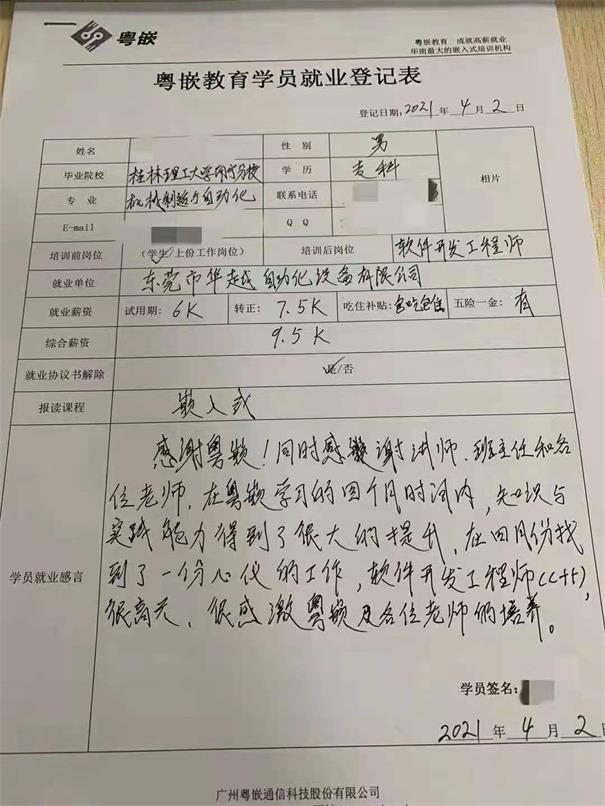 粤嵌
粤嵌教育 成就高薪就业
华南最大的嵌入式培训机构
粤嵌教育学员就业登记表
登记日期:2021年4月2日
姓名 性别 男
毕业院校 桂林理工大学南宁分校 学历 专科 相片
专业 机械制造与自动化 联系电话
E-mail QQ
培训前岗位 (学生/上份工作岗位) 培训后岗位 软件开发工程师
就业单位 东莞市华越自动化设备有限公司
就业薪资 试用期:6K 转正:7.5K 吃住补贴:包吃包住 五险一金:有
综合薪资 9.5K
就业协议书解除 是/否
报读课程 嵌入式
感谢粤嵌!同时感谢讲师、班主任和各
位老师,在粤嵌学习的四个月时间内,知识与
实践能力得到了很大的提升,在四月份找
学员就业感言
到了一份心仪的工作,软件开发工程师(C++),
很高兴,很感激粤嵌及各位老师的培养。
学员签名:
2021年4月2日
广州粤嵌通信科技股份有限公司